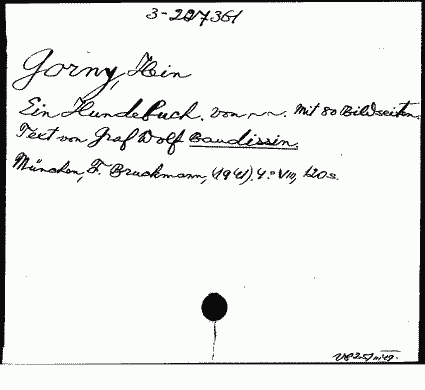 3-207361
Gorny, Hein
Ein Hundebuch. von ~~. Mit 80 Bildseiten.
Text von Graf Wolf Baudissin.
München, F. Bruckmann, (1941). 4° VIII, 120 s.